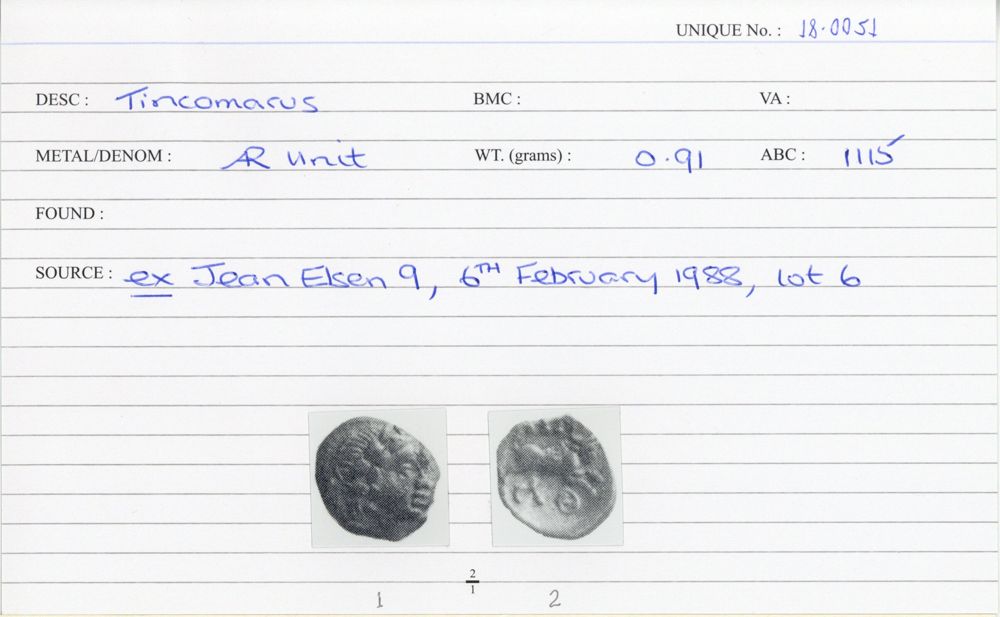 UNIQUE No. : 18.0051
DESC : Tincomarus BMC : VA :
METAL/DENOM : AR Unit WT. (grams) : 0.91 ABC : 1115
FOUND :
SOURCE : ex Jean Elsen 9, 6TH February 1988, lot 6
2
1
1 2